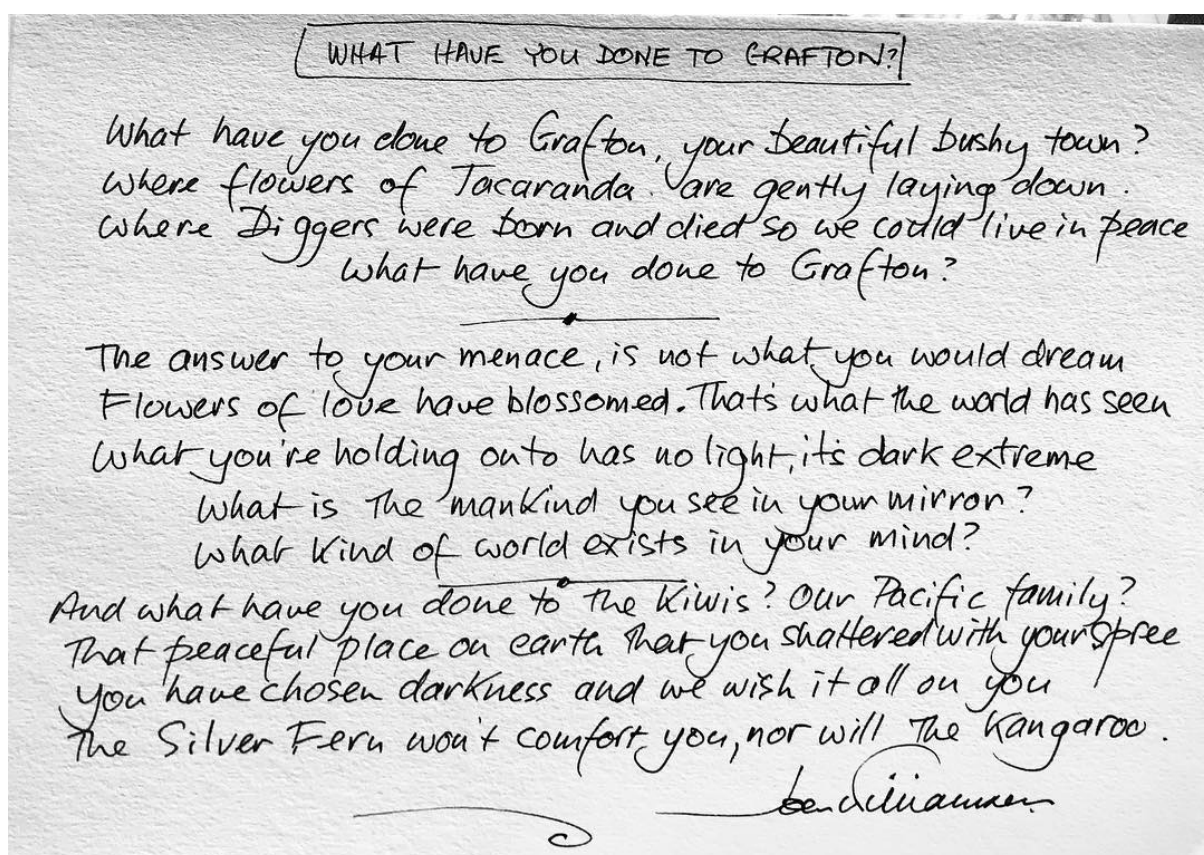 WHAT HAVE YOU DONE TO GRAFTON?
What have you done to Grafton, your beautiful bushy town?
Where flowers of Jacaranda. are gently laying down.
Where Diggers were born and died so we could live in peace
What have you done to Grafton?
The answer to your menace, is not what you would dream
Flowers of love have blossomed. Thats what the world has seen
What you're holding onto has no light, it's dark extreme
What is the mankind you see in your mirror?
What kind of world exists in your mind?
And what have you done to the Kiwis? Our Pacific family?
That peaceful place on earth that you shattered with your spree
You have chosen darkness and we wish it all on you
The Silver Fern won't comfort you, nor will the Kangaroo.